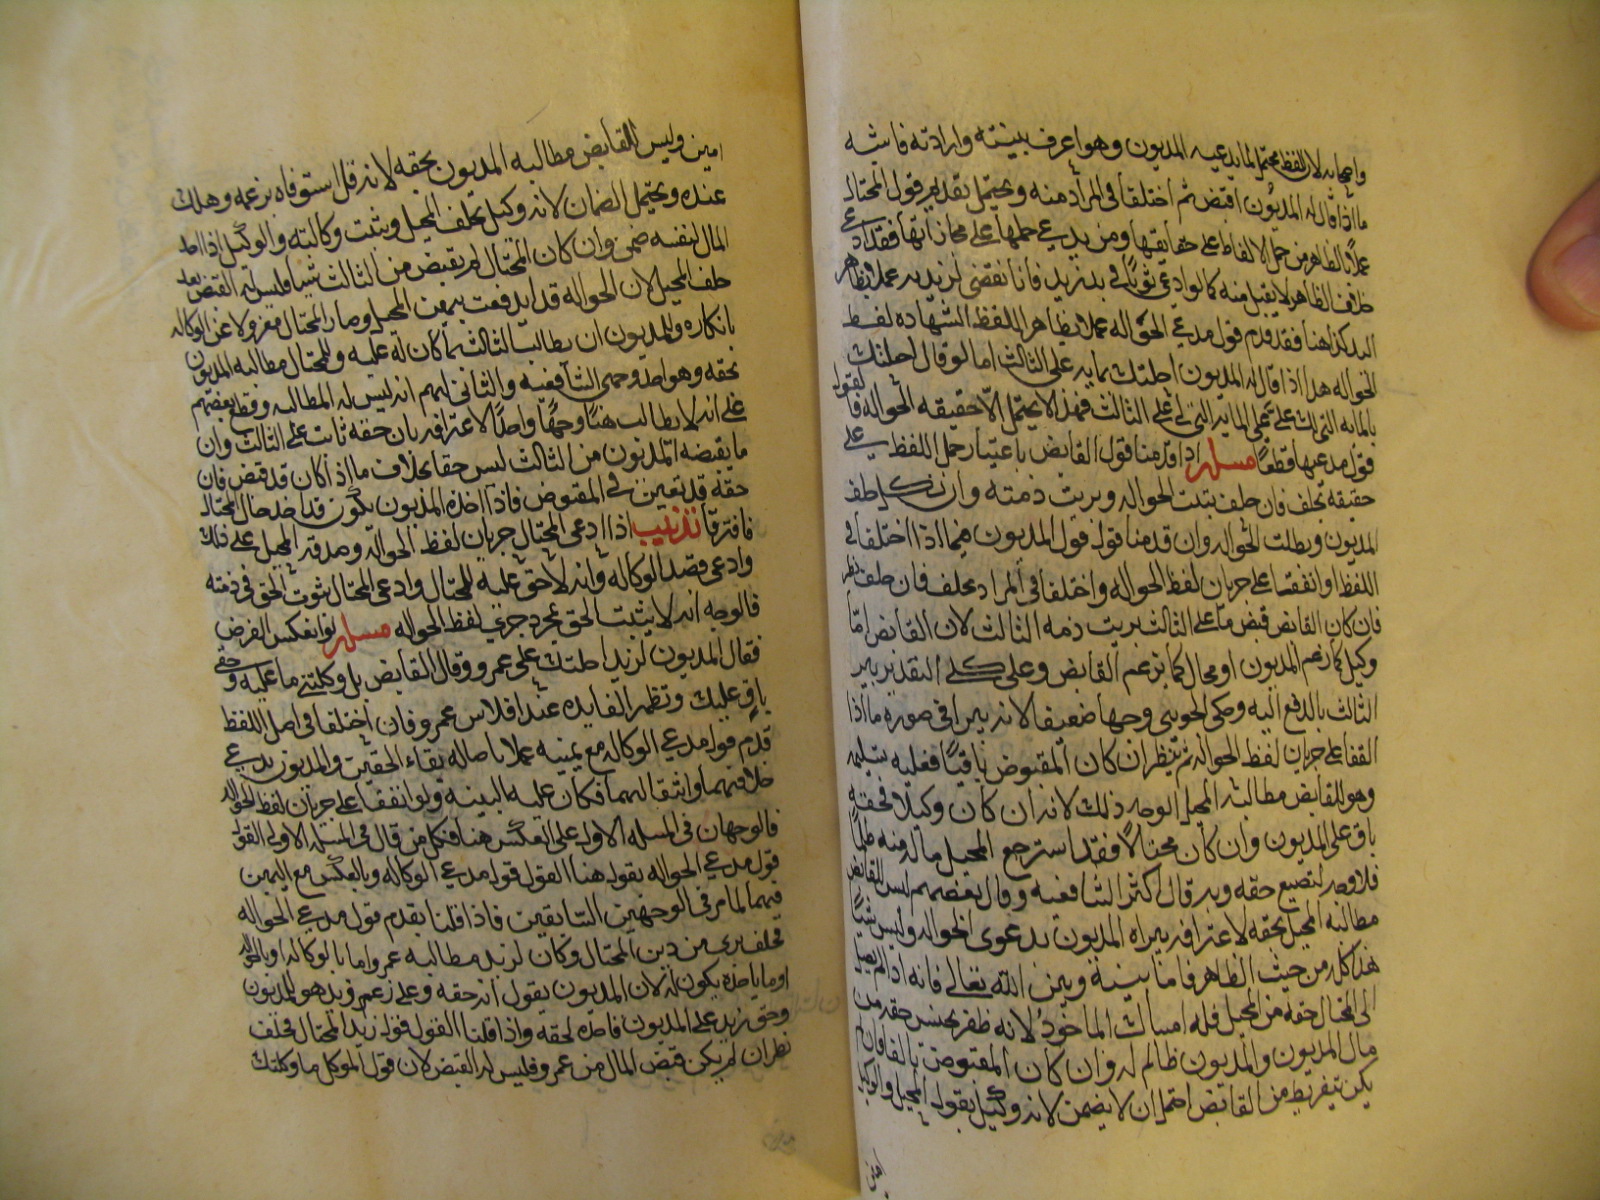 واصحابه لان اللفظ محتمل لما يدعيه المديون وهو اعرف بنيته وارادته فاشبه
ما اذا قال له المديون اقبض ثم اختلفا في المراد منه ويحتمل تقديم قول المحتال
عملا بالظاهر من حمل الالفاظ على حقايقها ومن يدعي حملها على مجازاتها فقد ادعى
خلاف الظاهر لا يقبل منه كما لو ادعى ثوبا في يد زيد فانا نقضي لزيد به عملا بظاهر
اليد كذا هنا فقد قدم قول مدعي الحواله عملا بظاهر اللفظ الشهاده لفظ
الحواله هذا اذا قال له المديون احلتك بمايه على الثالث اما لو قال احلتك
بالمايه التي لك علي على المايه التي لي على الثالث فهذا لا يحتمل الا حقيقه الحواله فالقول
قول مدعيها قطعا مسله اذا قدمنا قول القابض باعتبار حمل اللفظ على
حقيقته تحلف فان حلف ثبتت الحواله وبريت ذمته وان نكل حلف
المديون وبطلت الحواله وان قدمنا قوله قول المديون فيما اذا اختلفا في
اللفظ او اتفقا على جريان لفظ الحواله واختلفا في المراد يحلف فان حلف نظر
فان كان القابض قبض ما على الثالث بريت ذمه الثالث لان القابض اما
وكيل كما زعم المديون او محال كما يزعم القابض وعلى كلي التقديرين يبر
الثالث بالدفع اليه وحكى الجويني وجها ضعيفا لانه يبرا في صوره ما اذا
اتفقا على جريان لفظ الحواله ثم ينظر ان كان المقبوض باقيا فعليه تسليمه
وهو للقابض مطالبه المحيل الوجه ذلك لانه ان كان وكيلا فحقه
باق على المديون وان كان محتالا فقد استرجع المحيل ماله منه ظلما
فلا وجه لتضيع حقه وبه قال اكثر الشافعيه وقال بعضهم ليس للقابض
مطالبه المحيل بحقه لاعترافه ببراه المديون بدعوى الحواله وليس شيا
هذا كله من حيث الظاهر فاما بينه وبين الله تعالى فانه اذا لم يصل
الى المحتال حقه من المحيل فله امساك الماخوذ لانه ظفر بجنس حقه من
مال المديون والمديون ظالم له وان كان المقبوض تالفا فان لم
يكن بتفريط من القابض احتمل ان لا يضمن لانه وكيل بقول المحيل والوكيل
امين وليس للقابض مطالبه المديون بحقه لانه قد استوفاه بزعمه وهلك
عنده ويحتمل الضمان لانه وكيل بحلف المحيل ويثبت وكالته والوكيل اذا اخذ
المال لنفسه ضمن وان كان المحتال لم يقبض من الثالث شيا فليس له القبض بعد
حلف المحيل لان الحواله قد اندفعت بيمين المحيل وصار المحتال معزولا عن الوكاله
بانكاره وللمديون ان يطالب الثالث بما كان له عليه وللمحتال مطالبه المديون
بحقه وهو احد وجهي الشافعيه والثاني لهم انه ليس له المطالبه وقطع بعضهم
على انه لا يطالب هنا وجها واحدا لاعترافه بان حقه ثابت على الثالث وان
ما يقبضه المديون من الثالث ليس حقا بخلاف ما اذا كان قد قبض فان
حقه قد تعين في المقبوض فاذا اخذه المديون يكون قد اخذ مال المحتال
فافترقا تذنيب اذا ادعى المحتال جريان لفظ الحواله وصدقه المحيل على ذلك
وادعى قصد الوكاله وانه لا حق عليه للمحتال وادعى المحتال ثبوت الحق في ذمته
فالوجه انه لا يثبت الحق بمجرد جري لفظ الحواله مسله لو انعكس الفرض
فقال المديون لزيد احلتك على عمرو وقال القابض بل وكلتني ما عليه وحقي
باق عليك وتظهر الفايده عند افلاس عمرو فان اختلفا في اصل اللفظ
قدم قول مدعي الوكاله مع يمينه عملا باصاله بقاء الحقين والمديون يدعي
خلافهما وانتقالهما فكان عليه البينه ولو اتفقا على جريان لفظ الحواله
فالوجهان في المسله الاولى على العكس هنا فكل من قال في المسله الاولى القول
قول مدعي الحواله يقول هنا القول قول مدعي الوكاله وبالعكس مع اليمين
فيهما لما مر في الوجهين السابقين فاذا قلنا بقدم قول مدعي الحواله
فحلف برى من دين المحتال وكان لزيد مطالبه عمرو اما بالوكاله او بالحواله
او ما ياخذه يكون له لان المديون يقول انه حقه وعلى زعم زيد هو للمديون
وحق زيد على المديون فاخذه لحقه واذا قلنا القول قول زيد المحتال فحلف
نظر ان لم يكن قبض المال من عمرو فليس له القبض لان قول الموكل ما وكلتك